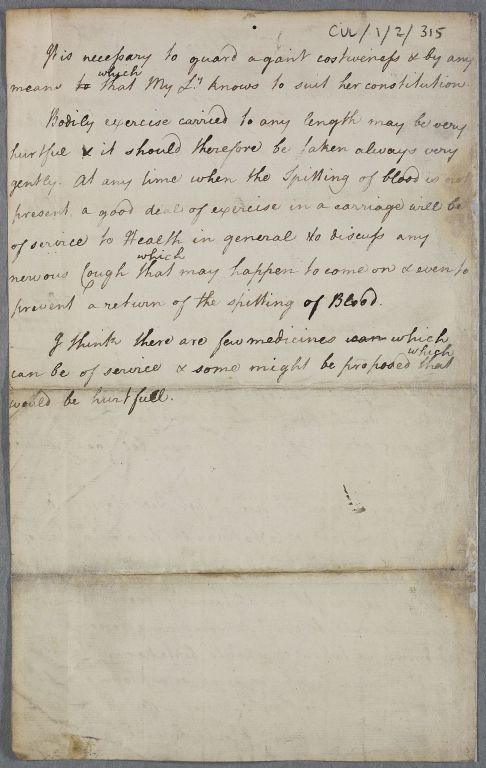 CUL/1/2/315
It is necessary to guard against costiveness & by any
which
means to that My Ly knows to suit her constitution.
Bodily exercise carried to any length may be very
hurtful & it should therefore be taken always very
gently. At any time when the Spitting of blood is not
present, a good deal of exercise in a carriage will be
of service to Health in general to discuss any
which
nervous Cough that may happen to come on & even to
prevent a return of the spitting of Blood.
I think there are few medicines can which
which
can be of service & some might be proposed that
would be hurtfull.